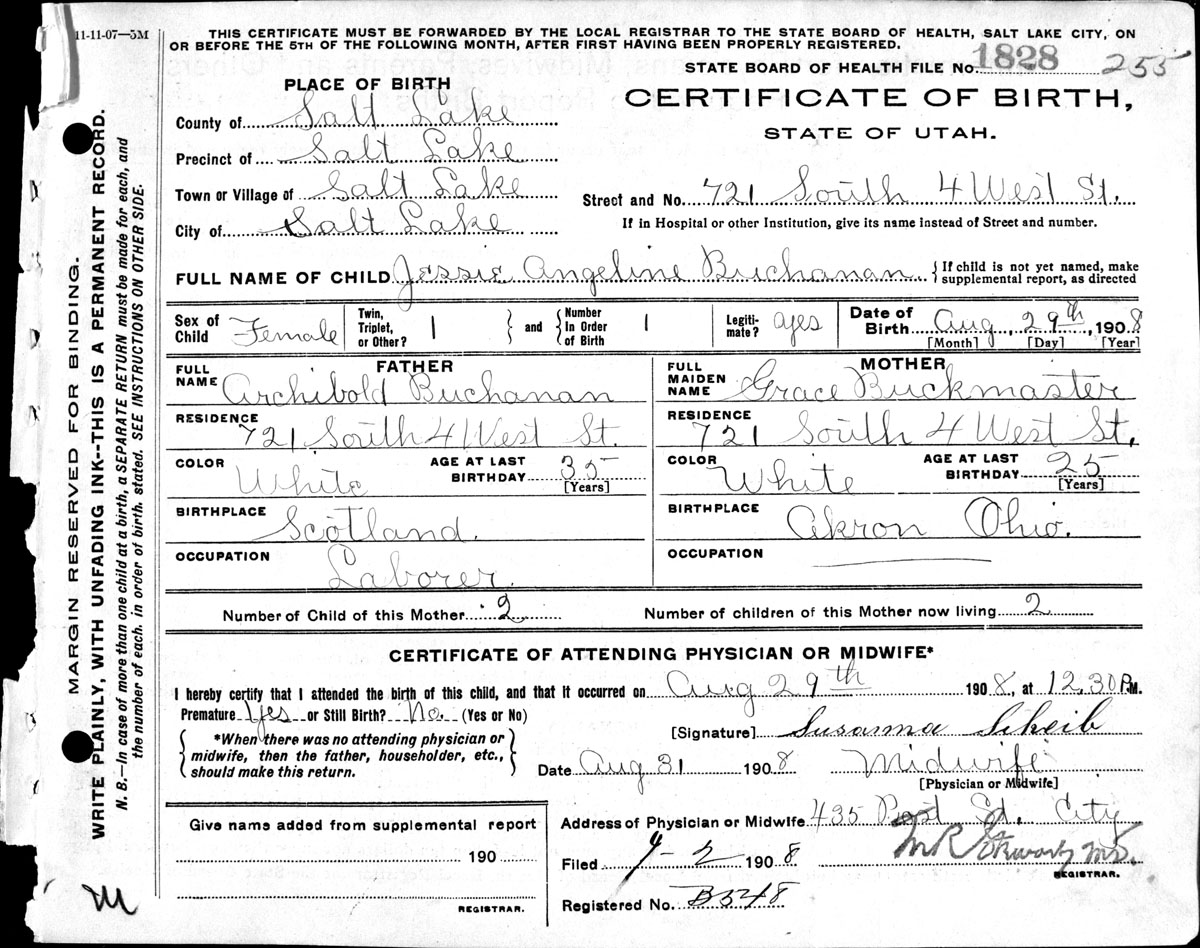 11-11-07—5M
THIS CERTIFICATE MUST BE FORWARDED BY THE LOCAL REGISTRAR TO THE STATE BOARD OF HEALTH, SALT LAKE CITY, ON
OR BEFORE THE 5TH OF THE FOLLOWING MONTH, AFTER FIRST HAVING BEEN PROPERLY REGISTERED.
STATE BOARD OF HEALTH FILE No. 1828 255
PLACE OF BIRTH
CERTIFICATE OF BIRTH,
STATE OF UTAH.
County of Salt Lake
Precinct of Salt Lake
Town or Village of Salt Lake
Street and No. 721 South 4 West St.
City of Salt Lake
If in Hospital or other Institution, give its name instead of Street and number.
FULL NAME OF CHILD Jessie Angeline Buchanan { If child is not yet named, make
supplemental report, as directed
Sex of Child Female
Twin, Triplet, or Other? 1 } and { Number In Order of Birth 1
Legiti-mate? yes
Date of Birth Aug, 29th, 1908
[Month] [Day] [Year]
FATHER
MOTHER
FULL NAME Archibold Buchanan
FULL MAIDEN NAME Grace Buckmaster
RESIDENCE 721 South 4 West St.
RESIDENCE 721 South 4 West St.
COLOR White AGE AT LAST BIRTHDAY 35 [Years]
COLOR White AGE AT LAST BIRTHDAY 25 [Years]
BIRTHPLACE Scotland.
BIRTHPLACE Akron Ohio.
OCCUPATION Laborer.
OCCUPATION
Number of Child of this Mother 2
Number of children of this Mother now living 2
CERTIFICATE OF ATTENDING PHYSICIAN OR MIDWIFE*
I hereby certify that I attended the birth of this child, and that it occurred on Aug 29th 1908, at 12.30 P.M.
Premature Yes or Still Birth? No. (Yes or No)
[Signature] Susanna Scheib
{ *When there was no attending physician or
midwife, then the father, householder, etc.,
should make this return. }
Date Aug 31 1908 Midwife
[Physician or Midwife]
Give name added from supplemental report
190
REGISTRAR.
Address of Physician or Midwife 435 St. City
Filed 9-2 1908 M R Stewart MD.
REGISTRAR.
Registered No. B548
M
MARGIN RESERVED FOR BINDING.
WRITE PLAINLY, WITH UNFADING INK--THIS IS A PERMANENT RECORD.
N. B.—In case of more than one child at a birth, a SEPARATE RETURN must be made for each, and
the number of each, in order of birth, stated. SEE INSTRUCTIONS ON OTHER SIDE.